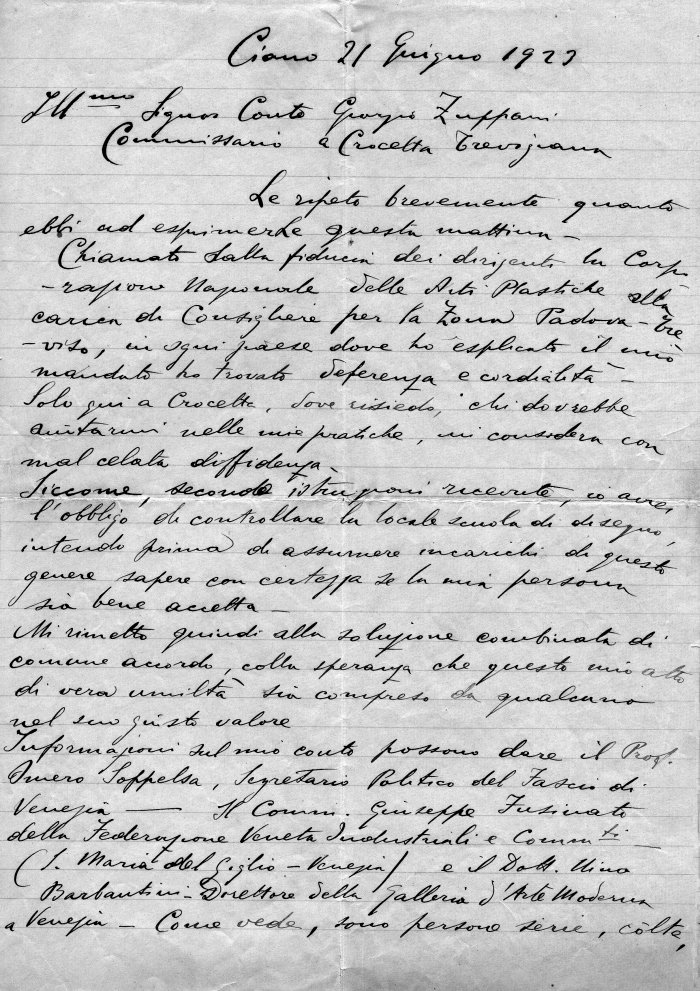 Ciano 21 Giugno 1923
Ill mo Signor Conte Giorgio Zuppani
Commissario a Crocetta Trevigiana
Le ripeto brevemente quanto
ebbi ad esprimerLe questa mattina -
Chiamato dalla fiducia dei dirigenti la Corpo
-razione Nazionale delle Arti Plastiche alla
carica di Consigliere per la Zona Padova - Tre
-viso, in ogni paese dove ho esplicato il mio
mandato ho trovato deferenza e cordialità -
Solo qui a Crocetta, dove risiedo, chi dovrebbe
aiutarmi nelle mie pratiche, mi considera con
mal celata diffidenza -
Siccome, secondo istruzioni ricevute, io avrei
l'obbligo di controllare la locale scuola di disegno,
intendo prima di assumere incarichi di questo
genere sapere con certezza se la mia persona
sia bene accetta -
Mi rimetto quindi alla soluzione combinata di
comune accordo, colla speranza che questo mio atto
di vera umiltà sia compreso da qualcuno
nel suo giusto valore
Informazioni sul mio conto possono dare il Prof.
Omero Soppelsa, Segretario Politico del Fascio di
Venezia — Il Comm. Giuseppe Fusinato
della Federazione Veneta Industriali e Comm ti -
(S. Maria del Giglio - Venezia) e il Dott. Nino
Barbantini - Direttore della Galleria d'Arte Moderna
a Venezia - Come vede, sono persone serie, colte,